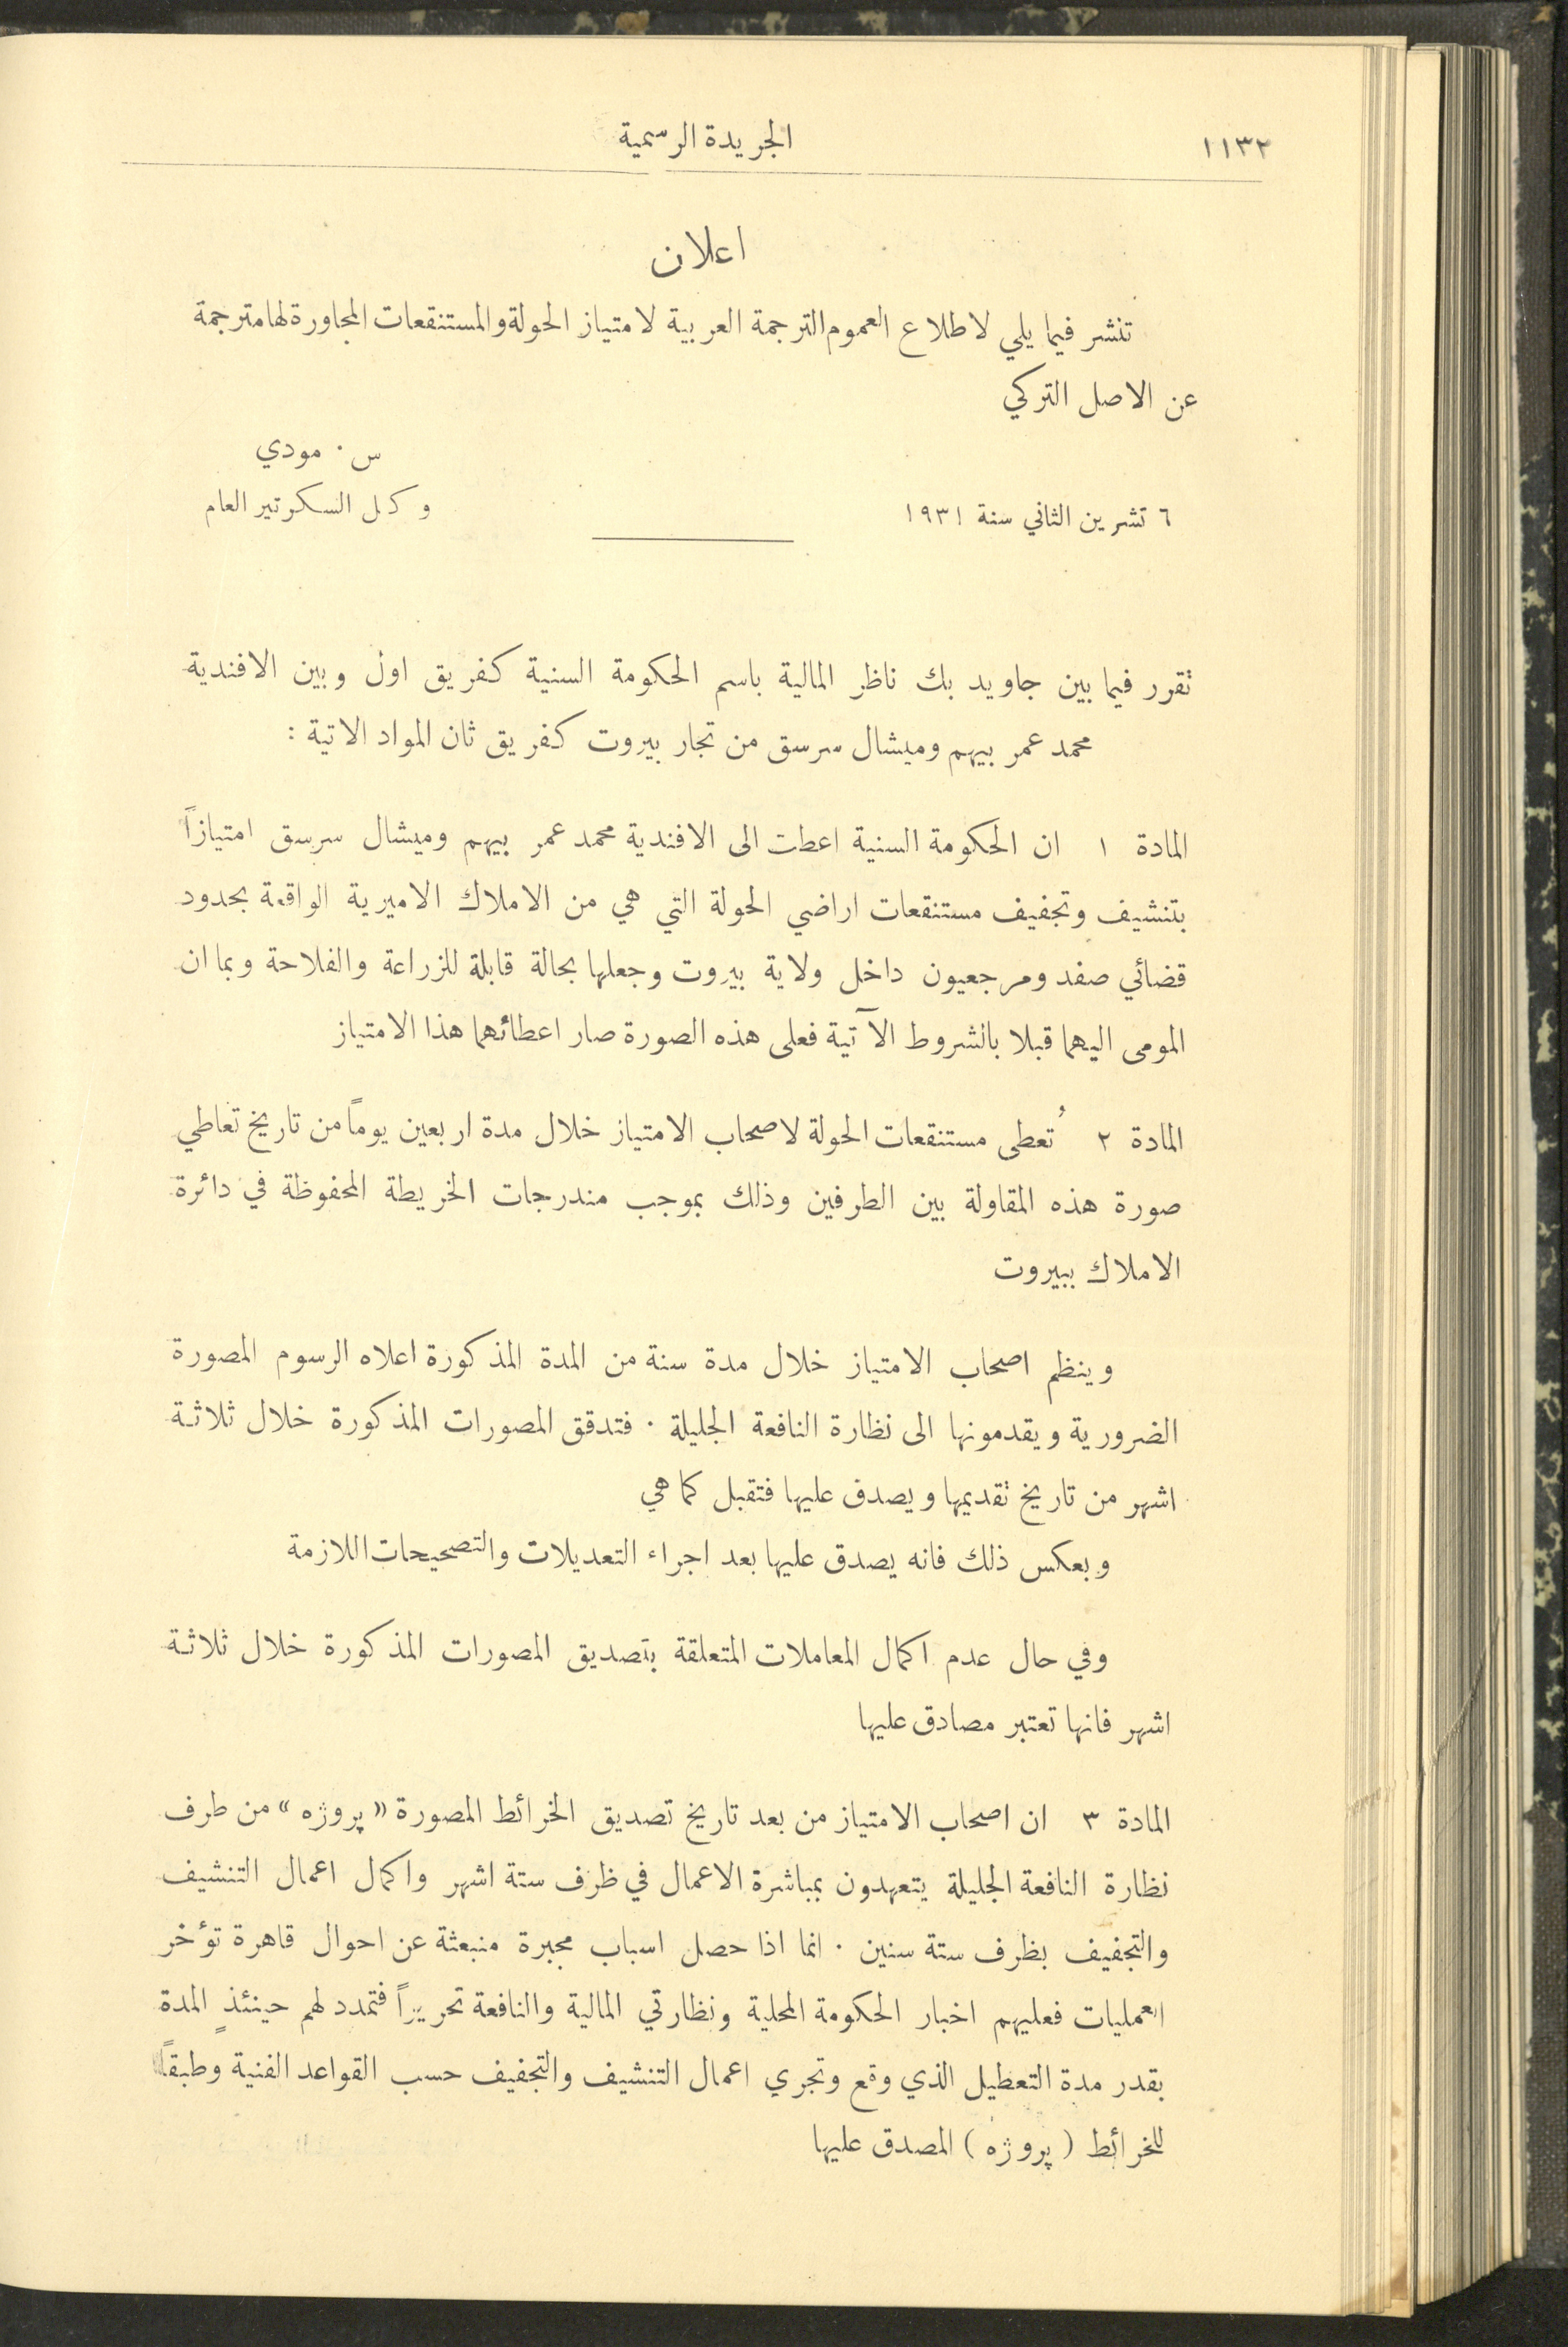 ١١٣٢
الجريدة الرسمية
اعلان
تنشر فيما يلي لاطلاع العموم الترجمة العربية لامتياز الحولة والمستنقعات المجاورة لها مترجمة
عن الاصل التركي
س ٠ مودي
وكيل السكرتير العام
٦ تشرين الثاني سنة ١٩٣١
تقرر فيما بين جاويد بك ناظر المالية باسم الحكومة السنية كفريق اول وبين الافندية
محمد عمر بيهم وميشال سرسق من تجار بيروت كفريق ثان المواد الاتية :
المادة ١ ان الحكومة السنية اعطت الى الافندية محمد عمر بيهم وميشال سرسق امتيازاً
بتنشيف وتجفيف مستنقعات اراضي الحولة التي هي من الاملاك الاميرية الواقعة بحدود
قضائي صفد ومرجعيون داخل ولاية بيروت وجعلها بحالة قابلة للزراعة والفلاحة وبما ان
المومى اليهما قبلا بالشروط الآتية فعلى هذه الصورة صار اعطائهما هذا الامتياز
المادة ٢ تُعطى مستنقعات الحولة لاصحاب الامتياز خلال مدة اربعين يوماً من تاريخ تعاطي
صورة هذه المقاولة بين الطرفين وذلك بموجب مندرجات الخريطة المحفوظة في دائرة
الاملاك ببيروت
وينظم اصحاب الامتياز خلال مدة سنة من المدة المذكورة اعلاه الرسوم المصورة
الضرورية ويقدمونها الى نظارة النافعة الجليلة ٠ فتدقق المصورات المذكورة خلال ثلاثة
اشهر من تاريخ تقديمها ويصدق عليها فتقبل كما هي
وبعكس ذلك فانه يصدق عليها بعد اجراء التعديلات والتصحيحات اللازمة
وفي حال عدم اكمال المعاملات المتعلقة بتصديق المصورات المذكورة خلال ثلاثة
اشهر فانها تعتبر مصادق عليها
المادة ٣ ان اصحاب الامتياز من بعد تاريخ تصديق الخرائط المصورة «پروژه» من طرف
نظارة النافعة الجليلة يتعهدون بمباشرة الاعمال في ظرف ستة اشهر واكمال اعمال التنشيف
والتجفيف بظرف ستة سنين ٠ انما اذا حصل اسباب مجبرة منبعثة عن احوال قاهرة تؤخر
العمليات فعليهم اخبار الحكومة المحلية ونظارتي المالية والنافعة تحريراً فتمدد لهم حينئذٍ المدة
بقدر مدة التعطيل الذي وقع وتجري اعمال التنشيف والتجفيف حسب القواعد الفنية وطبقاً
للخرائط ( پروژه ) المصدق عليها